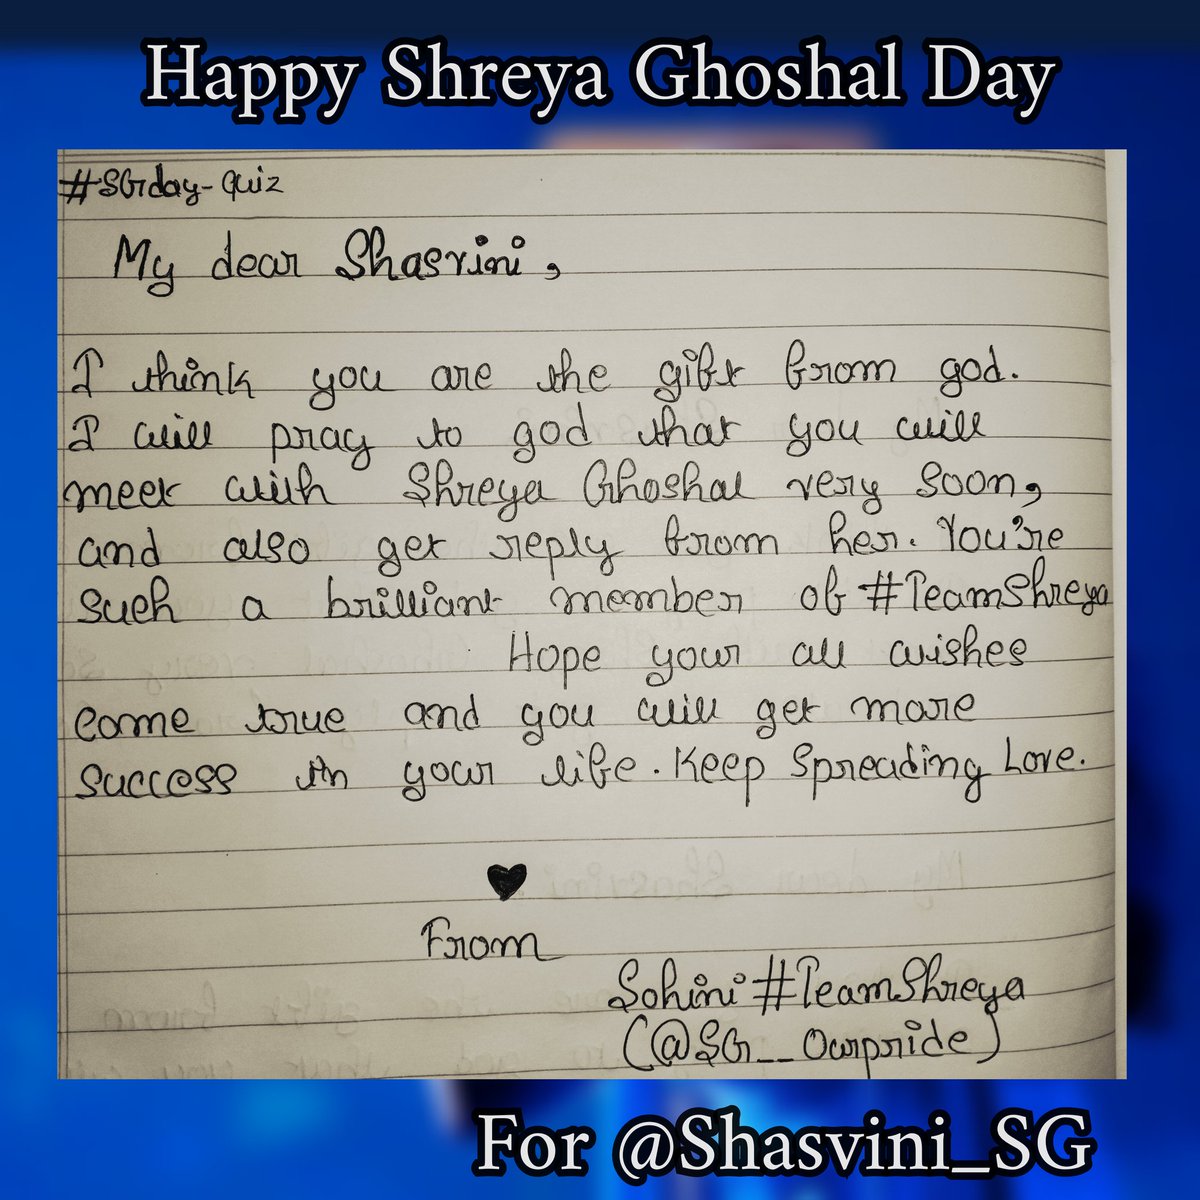 Happy Shreya Ghoshal Day
#SGday-Quiz
My dear Shasvini,
I think you are the gift from god.
I will pray to god that you will
meet with Shreya Ghoshal very soon,
and also get reply from her. You're
such a brilliant member of #TeamShreya
Hope your all wishes
come true and you will get more
success in your life. Keep Spreading Love.
From
Sohini #TeamShreya
(@SG__Ourpride)
For @Shasvini_SG